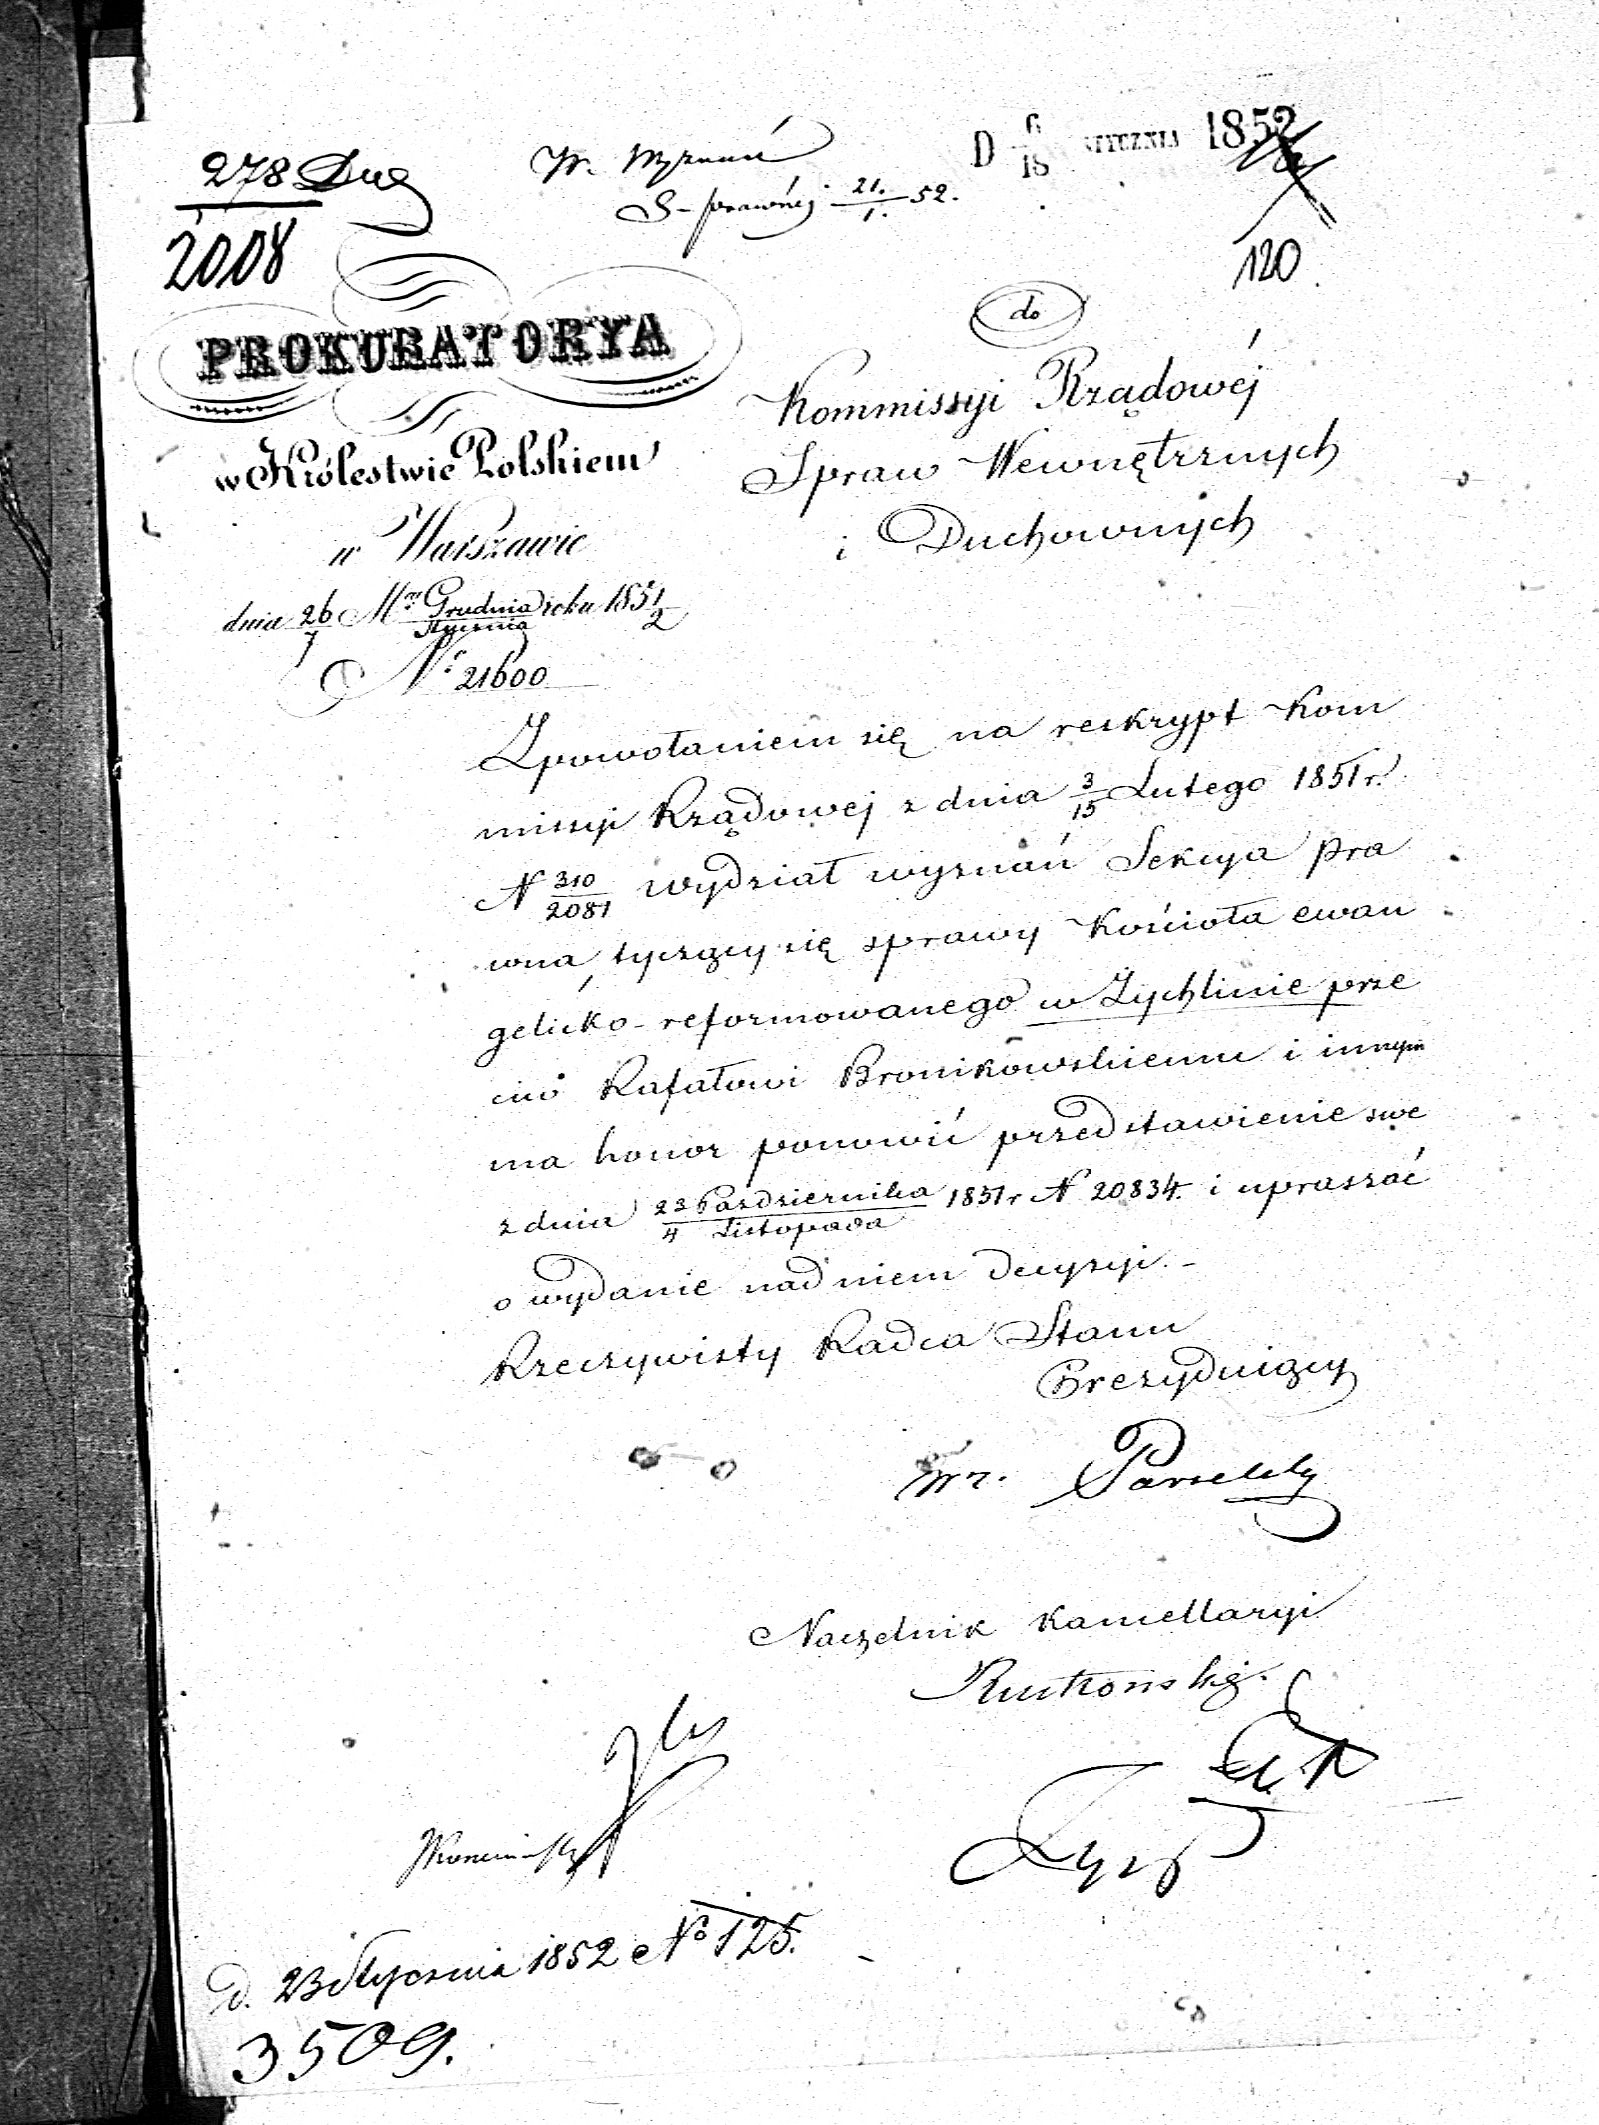 278 Duc
2008
W. Wyznań
S-prawnéj 21./1. 52.
D 6/18 STYCZNIA 1852
120
PROKURATORYA
w Królestwie Polskiem
w Warszawie
dnia 26/7 Mca Grudnia/Stycznia roku 1851/2
Nr 21600
do
Kommissyi Rządowéj
Spraw Wewnętrznych
i Duchownych
Z powołaniem się na reskrypt Kom
missyi Rządowej z dnia 3/15 Lutego 1851 r.
N 310/2081 wydział wyznań Sekcya pra
wna, tyczący się sprawy Kościoła ewan
gelicko-reformowanego w Żychlinie prze
ciw Rafałowi Bronikowskiemu i innym
ma honor ponowić przedstawienie swe
z dnia 23 Października/4 Listopada 1851 r N 20834. i upraszać
o wydanie nad niem decyzyi.-
Rzeczywisty Radca Stanu
Prezydujący
wz.
Naczelnik Kancellaryi
d. 23 Stycznia 1852 No 125.
3509.